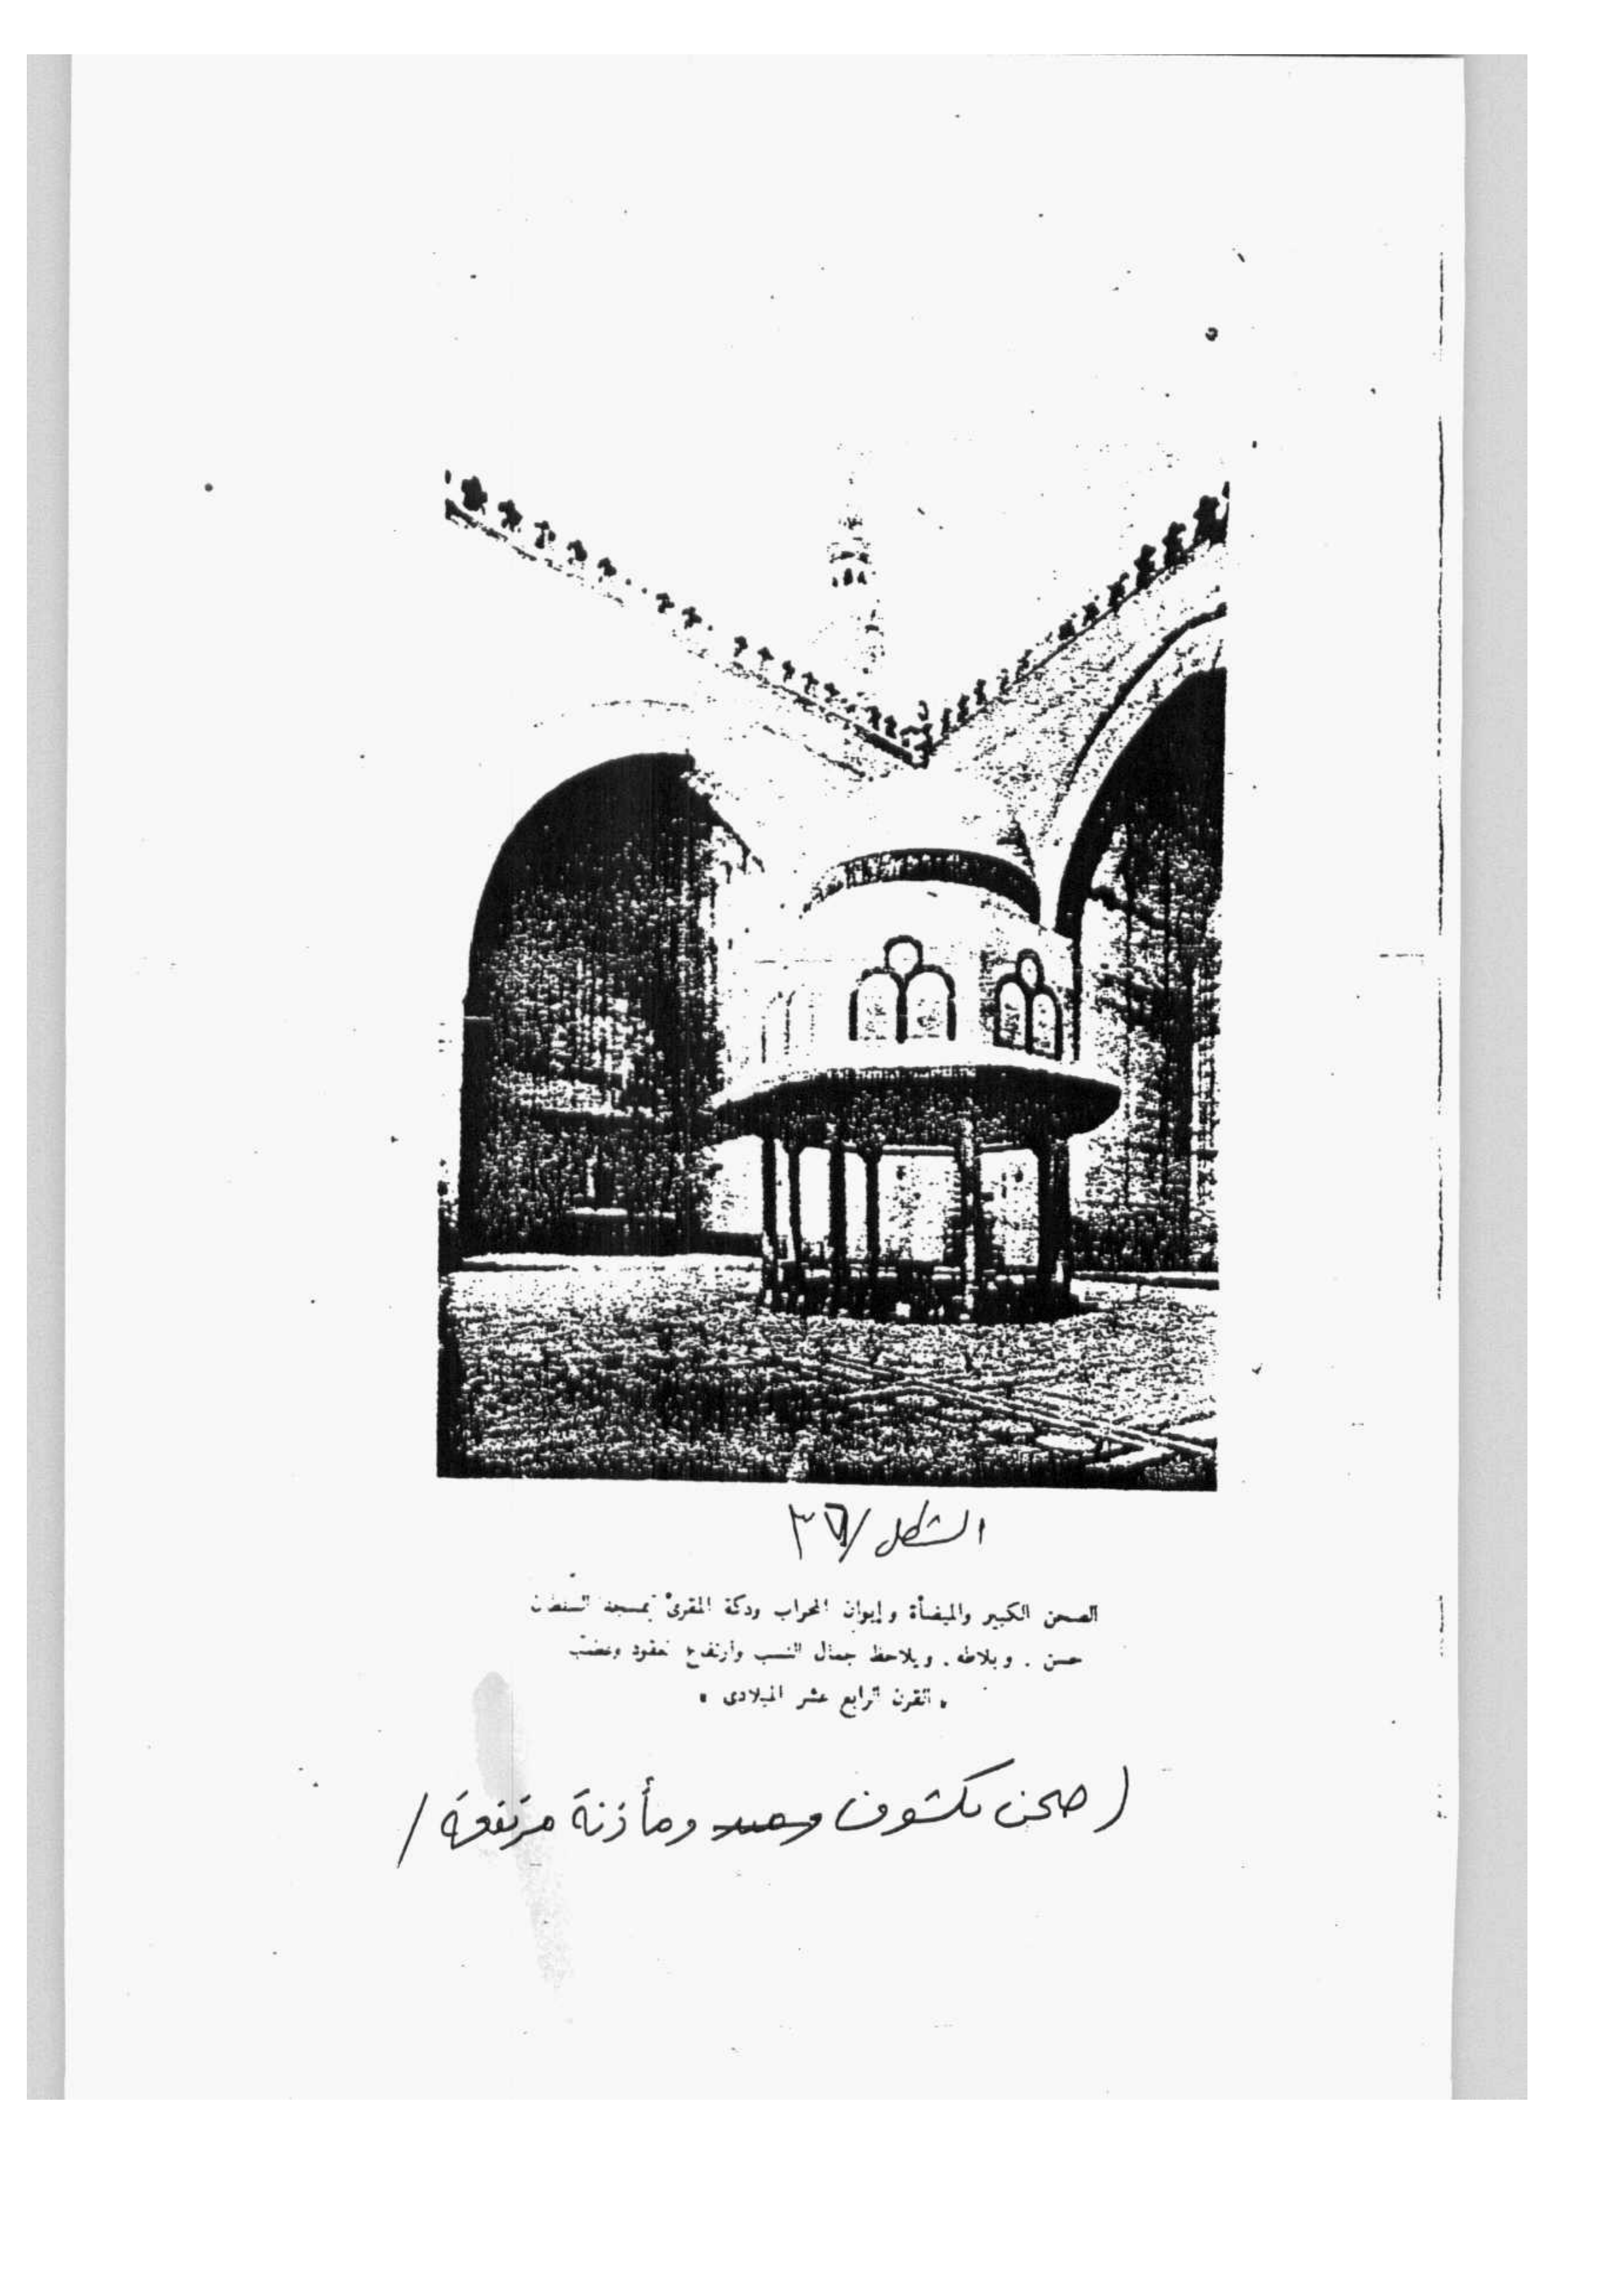 الشكل / ٣٦
الصحن الكبير والميضأة وإيوان المحراب ودكة المقرئ بمسجد السلطان
حسن . وبلاطه . ويلاحظ جمال النسب وارتفاع العقود
« القرن الرابع عشر الميلادى »
( صحن مكشوف ومأذنة مرتفعة /